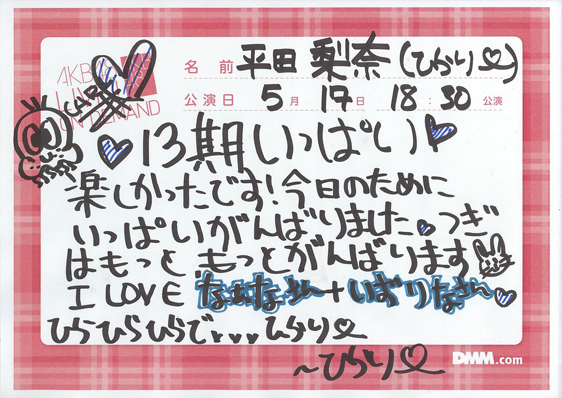 AKB
LIVE
ON DEMAND
CAP
名前 平田 梨奈 (ひかり♡)
公演日 5月 17日 18:30 公演
♥13期いっぱい♥
楽しかったです!今日のために
いっぱいがんばりました♥つぎ
はもっと、もっとがんばります
I LOVE なぁなさん+いずりなさん♥
ひらひらひらで、、、ひかり♡
〜ひかり♡
DMM.com